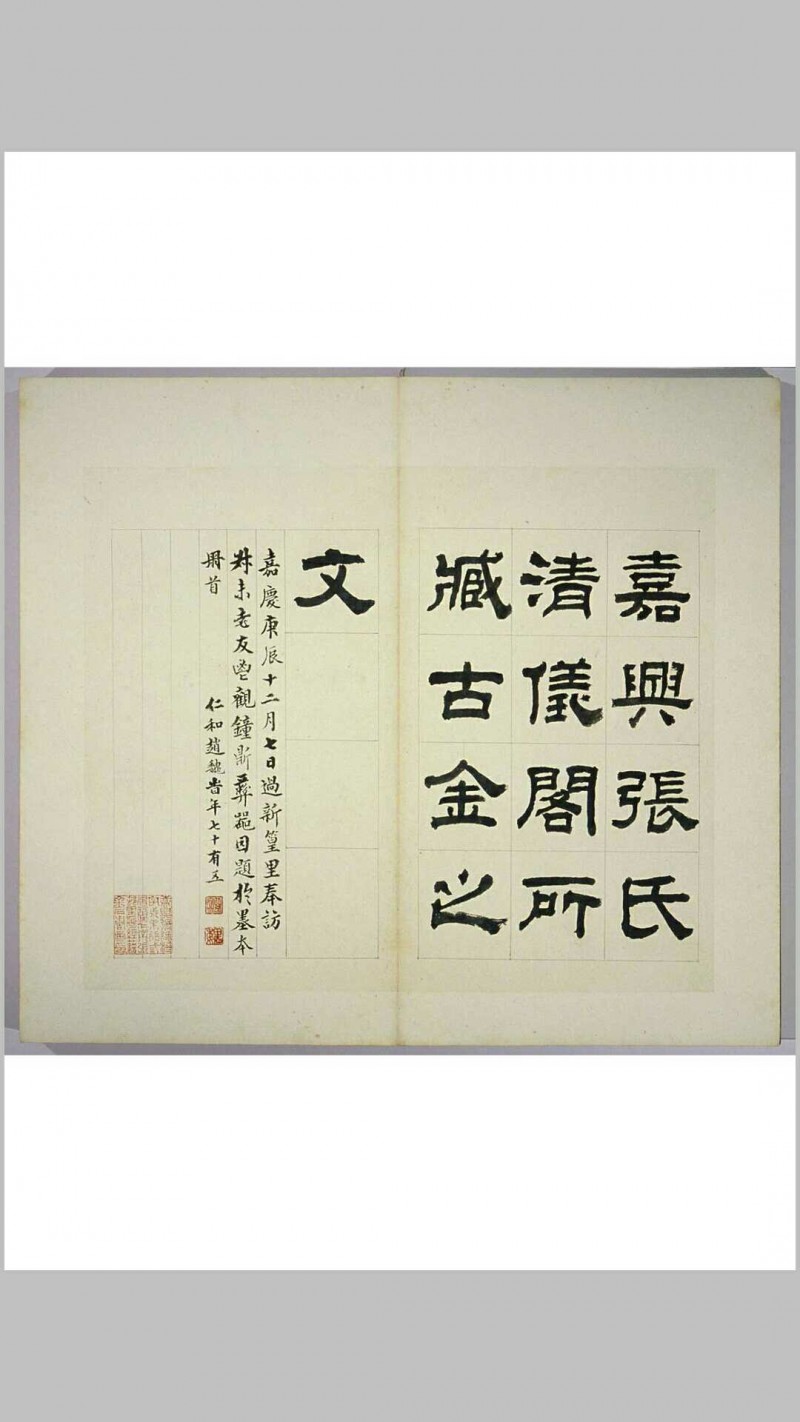 嘉興張氏
清儀閣所
藏古金之
文
嘉慶庚辰十二月七日過新篁里奉訪
尗未老友鬯觀鐘鼎彝器因題於墨本
冊首
仁和趙魏旹年七十有五